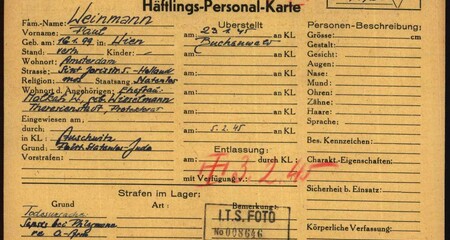 Häftlings-Personal-Karte
Fam.-Name: Weinmann
Vorname: Paul
Geb. am: 16.1.99 in: Wien
Stand: verh. Kinder:
Wohnort: Amsterdam
Strasse: Holland
Religion: Staatsang.
Wohnort d. Angehörigen: Ehefrau
geb. Wesselmann
Theresienstadt, Protektorat
Eingewiesen am:
durch:
in KL: Auschwitz
Grund: Jude
Vorstrafen:
Überstellt
am: 23.1.45 an KL
Buchenwald
am: an KL
am: an KL
am: an KL
am: an KL
am: 5.2.45 an KL
Entlassung:
am: durch KL:
mit Verfügung v.:
2.45
Personen-Beschreibung:
Grösse:
Gestalt:
Gesicht:
Augen:
Nase:
Mund:
Ohren:
Zähne:
Haare:
Sprache:
Bes. Kennzeichen:
Charakt.-Eigenschaften:
Sicherheit b. Einsatz:
Körperliche Verfassung:
Strafen im Lager:
Grund Art: Bemerkung:
Todesursache
Sepsis bei Phlegmone
I.T.S. FOTO
No 008646